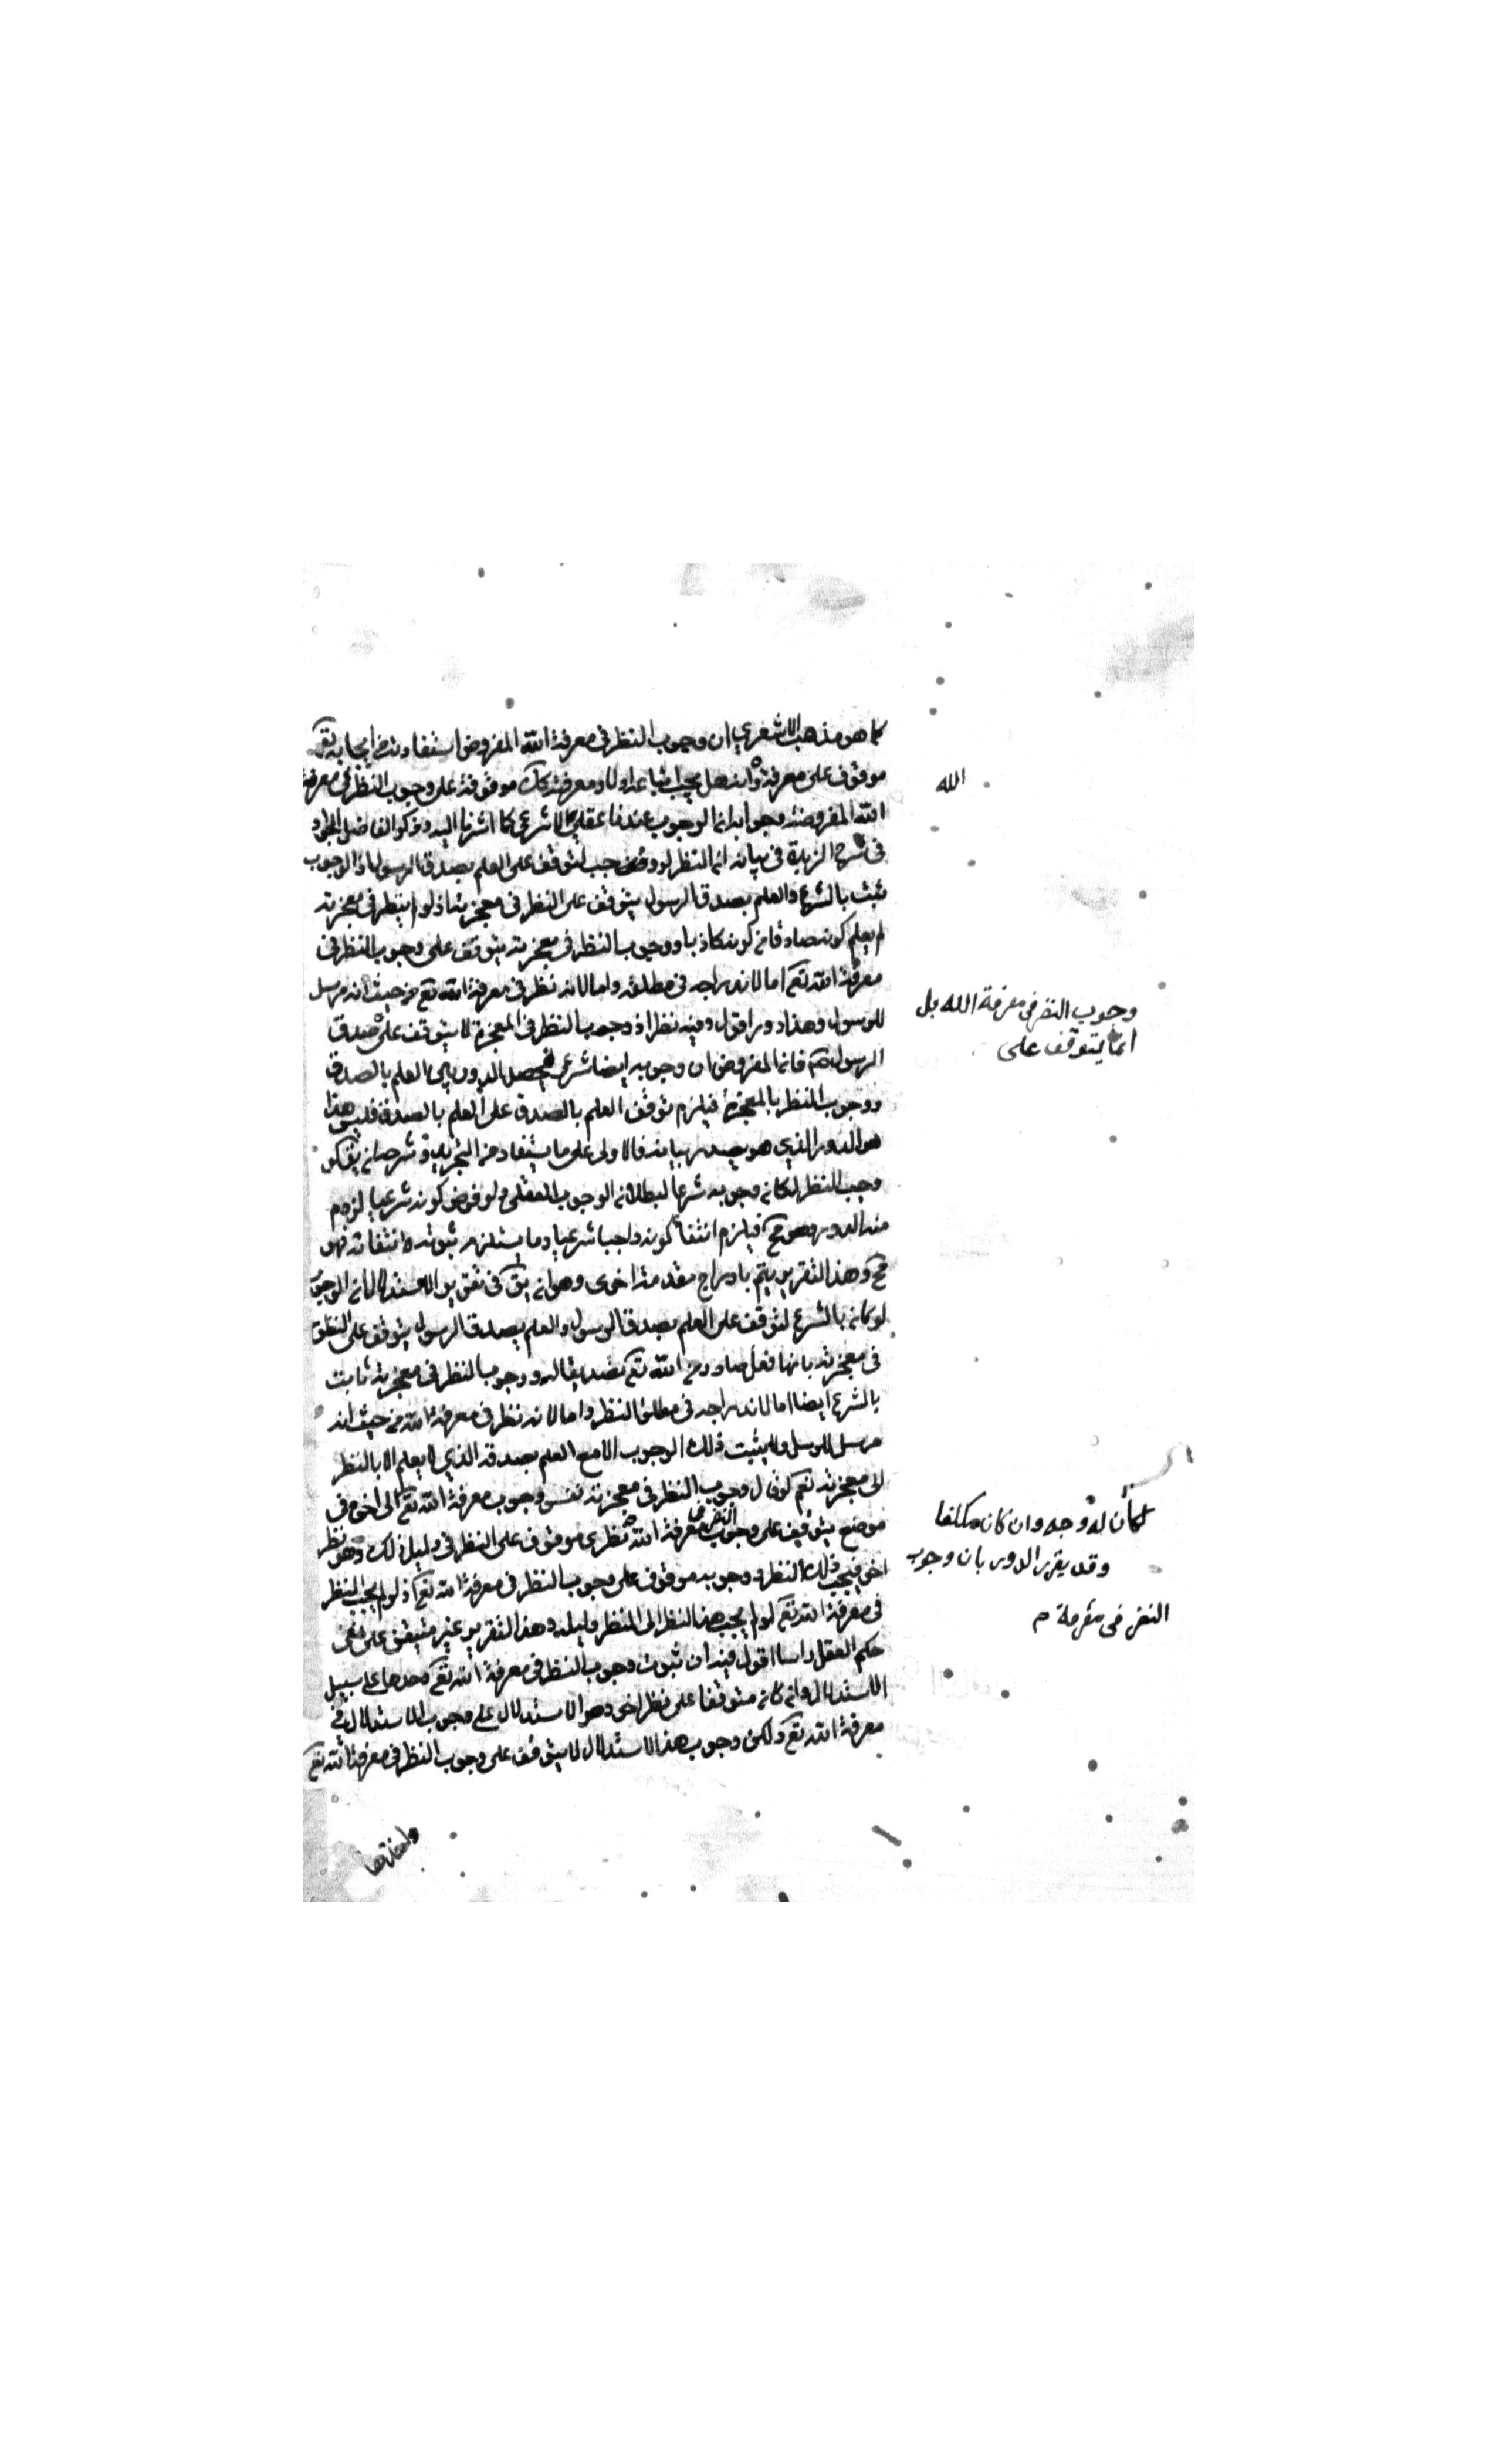 كما هو مذهب الاشعري ان وجوب النظر في معرفة الله المفروض استفادته من ايجابه تع
موقوف على معرفة وانه هل يجب اتباعه اولا ومعرفته كك موقوفة على وجوب النظر في معرفة
الله المفروضة وجوابه ان الوجوب عندنا عقلي لا شرعي كما اشرنا اليه وذكر الفاضل الجواد
في شرح الزبدة في بيانه ان النظر لو وجب لتوقف على العلم بصدق الرسول اذ الوجوب
ثبت بالشرع والعلم بصدق الرسول يتوقف على النظر في معجزته اذ لو لم ينظر في معجزته
لم يعلم كونه صادقا من كونه كاذبا ووجوب النظر في معجزته يتوقف على وجوب النظر في
معرفة الله تع اما لاندراجه في مطلقه واما لانه نظر في معرفة الله تع من حيث انه مرسل
للرسول وهذا دور اقول وفيه نظر اذ وجوب النظر في المعجزة لا يتوقف على صدق
الرسول فان المفروض ان وجوبه ايضا شرعي فيحصل الدور بين العلم بالصدق
ووجوب النظر بالمعجزة فيلزم توقف العلم بالصدق على العلم بالصدق فليس هذا
هو الدور الذي هو بصدد بيانه فالاولى على ما يستفاد من التجريد وشرحه ان يق لو
وجب النظر لكان وجوبه شرعا لبطلان الوجوب العقلي ولو فرض كونه شرعيا لزم
منه الدور وهو مح فيلزم انتفاء كونه واجبا شرعيا وما يستلزم ثبوته انتفائه فهو
مح وهذا التقرير يتم بادراج مقدمة اخرى وهو ان يق في تقرير الاستدلال ان الوجوب
لو كان بالشرع لتوقف على العلم بصدق الرسول والعلم بصدق الرسول يتوقف على النظر
في معجزته بانها فعل صادر من الله تع تصديقا له ووجوب النظر في معجزته ثابت
بالشرع ايضا اما لاندراجه في مطلق النظر واما لانه نظر في معرفة الله من حيث انه
مرسل للرسل ولا يثبت ذلك الوجوب الا مع العلم بصدقه الذي لا يعلم الا بالنظر
الى معجزته نعم لو قال وجوب النظر في معجزته نفس وجوب معرفة الله تع الى اخره في
موضع يتوقف على وجوب النظر في معرفة الله نظري موقوف على النظر في دليل ذلك وهو نظر
اخر فيجب ذلك النظر ووجوبه موقوف على وجوب النظر في معرفة الله تع اذ لو لم يجب النظر
في معرفة الله تع لم يجب هذا النظر الى النظر دليله وهذا التقرير غير مبتن على نفي
حكم العقل راسا اقول فيه ان ثبوت وجوب النظر في معرفة الله تع وحدها على سبيل
الاستدلال وان كان متوقفا على نظر اخر وهو الاستدلال على وجوب الاستدلال في
معرفة الله تع ولكن وجوب هذا الاستدلال لا يتوقف على وجوب النظر في معرفة الله تع
الله
وجوب النظر في معرفة الله بل
انما يتوقف على
لكان له وجه وان كان مكلفا
وقد يقرر الدور بان وجوب
النظر في معرفة م